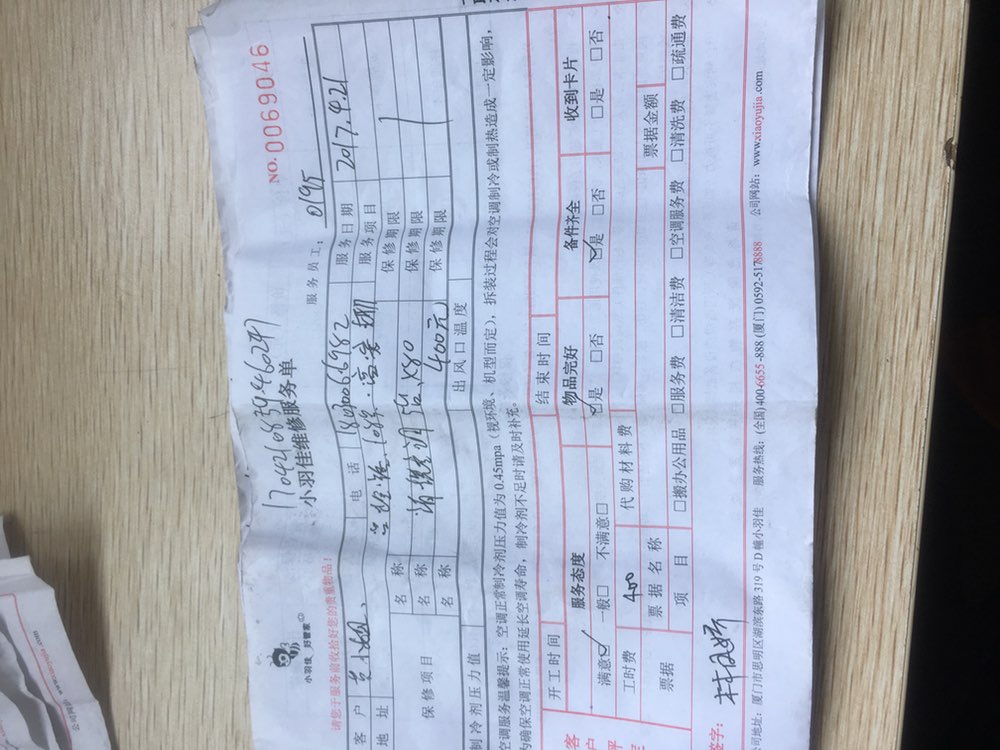 NO.0069046
170421083946247
小羽佳维修服务单
小羽佳，好管家
服务员工：0195
请您于服务前收拾好您的贵重物品！
客户 电话 18030066982 服务日期 2017.4.21
地址 服务项目
保修项目 名称 保修期限
名称 清洗空调5台×80 保修期限
名称 400元 保修期限
制冷剂压力值 出风口温度
空调服务温馨提示：空调正常制冷剂压力值为0.45mpa（视环境、机型而定），拆装过程会对空调制冷或制热造成一定影响，
为确保空调正常使用延长空调寿命，制冷剂不足时请及时补充。
开工时间 结束时间
服务态度 物品完好 备件齐全 收到卡片
满意☑ 一般□ 不满意□ ☑是 □否 ☑是 □否 □是 □否
工时费 400 代购材料费
票据 票据名称 票据金额
项目 □搬办公用品 □服务费 □清洁费 □空调服务费 □清洗费 □疏通费
签字：
公司地址：厦门市思明区湖滨东路319号D幢小羽佳 服务热线：(全国)400-6655-888 (厦门)0592-5178888 公司网站：www.xiaoyujia.com